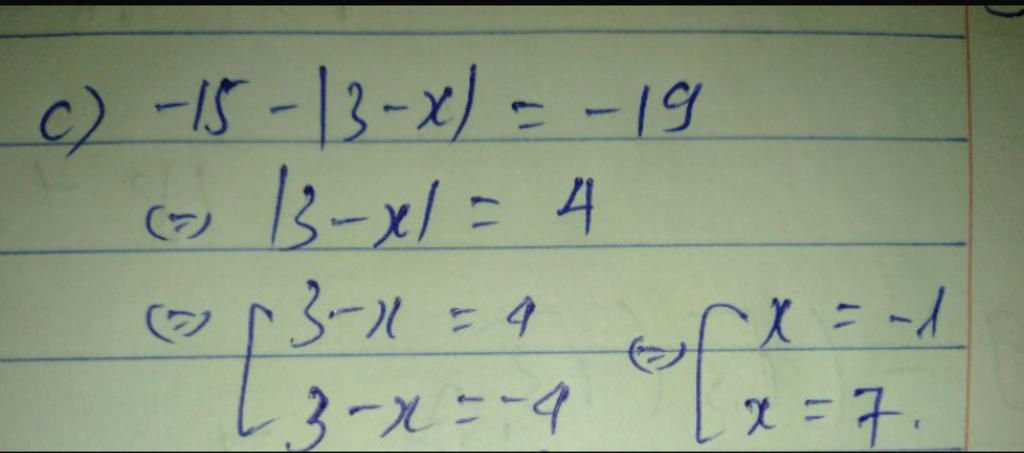 c) -15 - |3 - x| = -19
<=> |3 - x| = 4
<=> [ 3 - x = 4 <=> [ x = -1
3 - x = -4 x = 7.